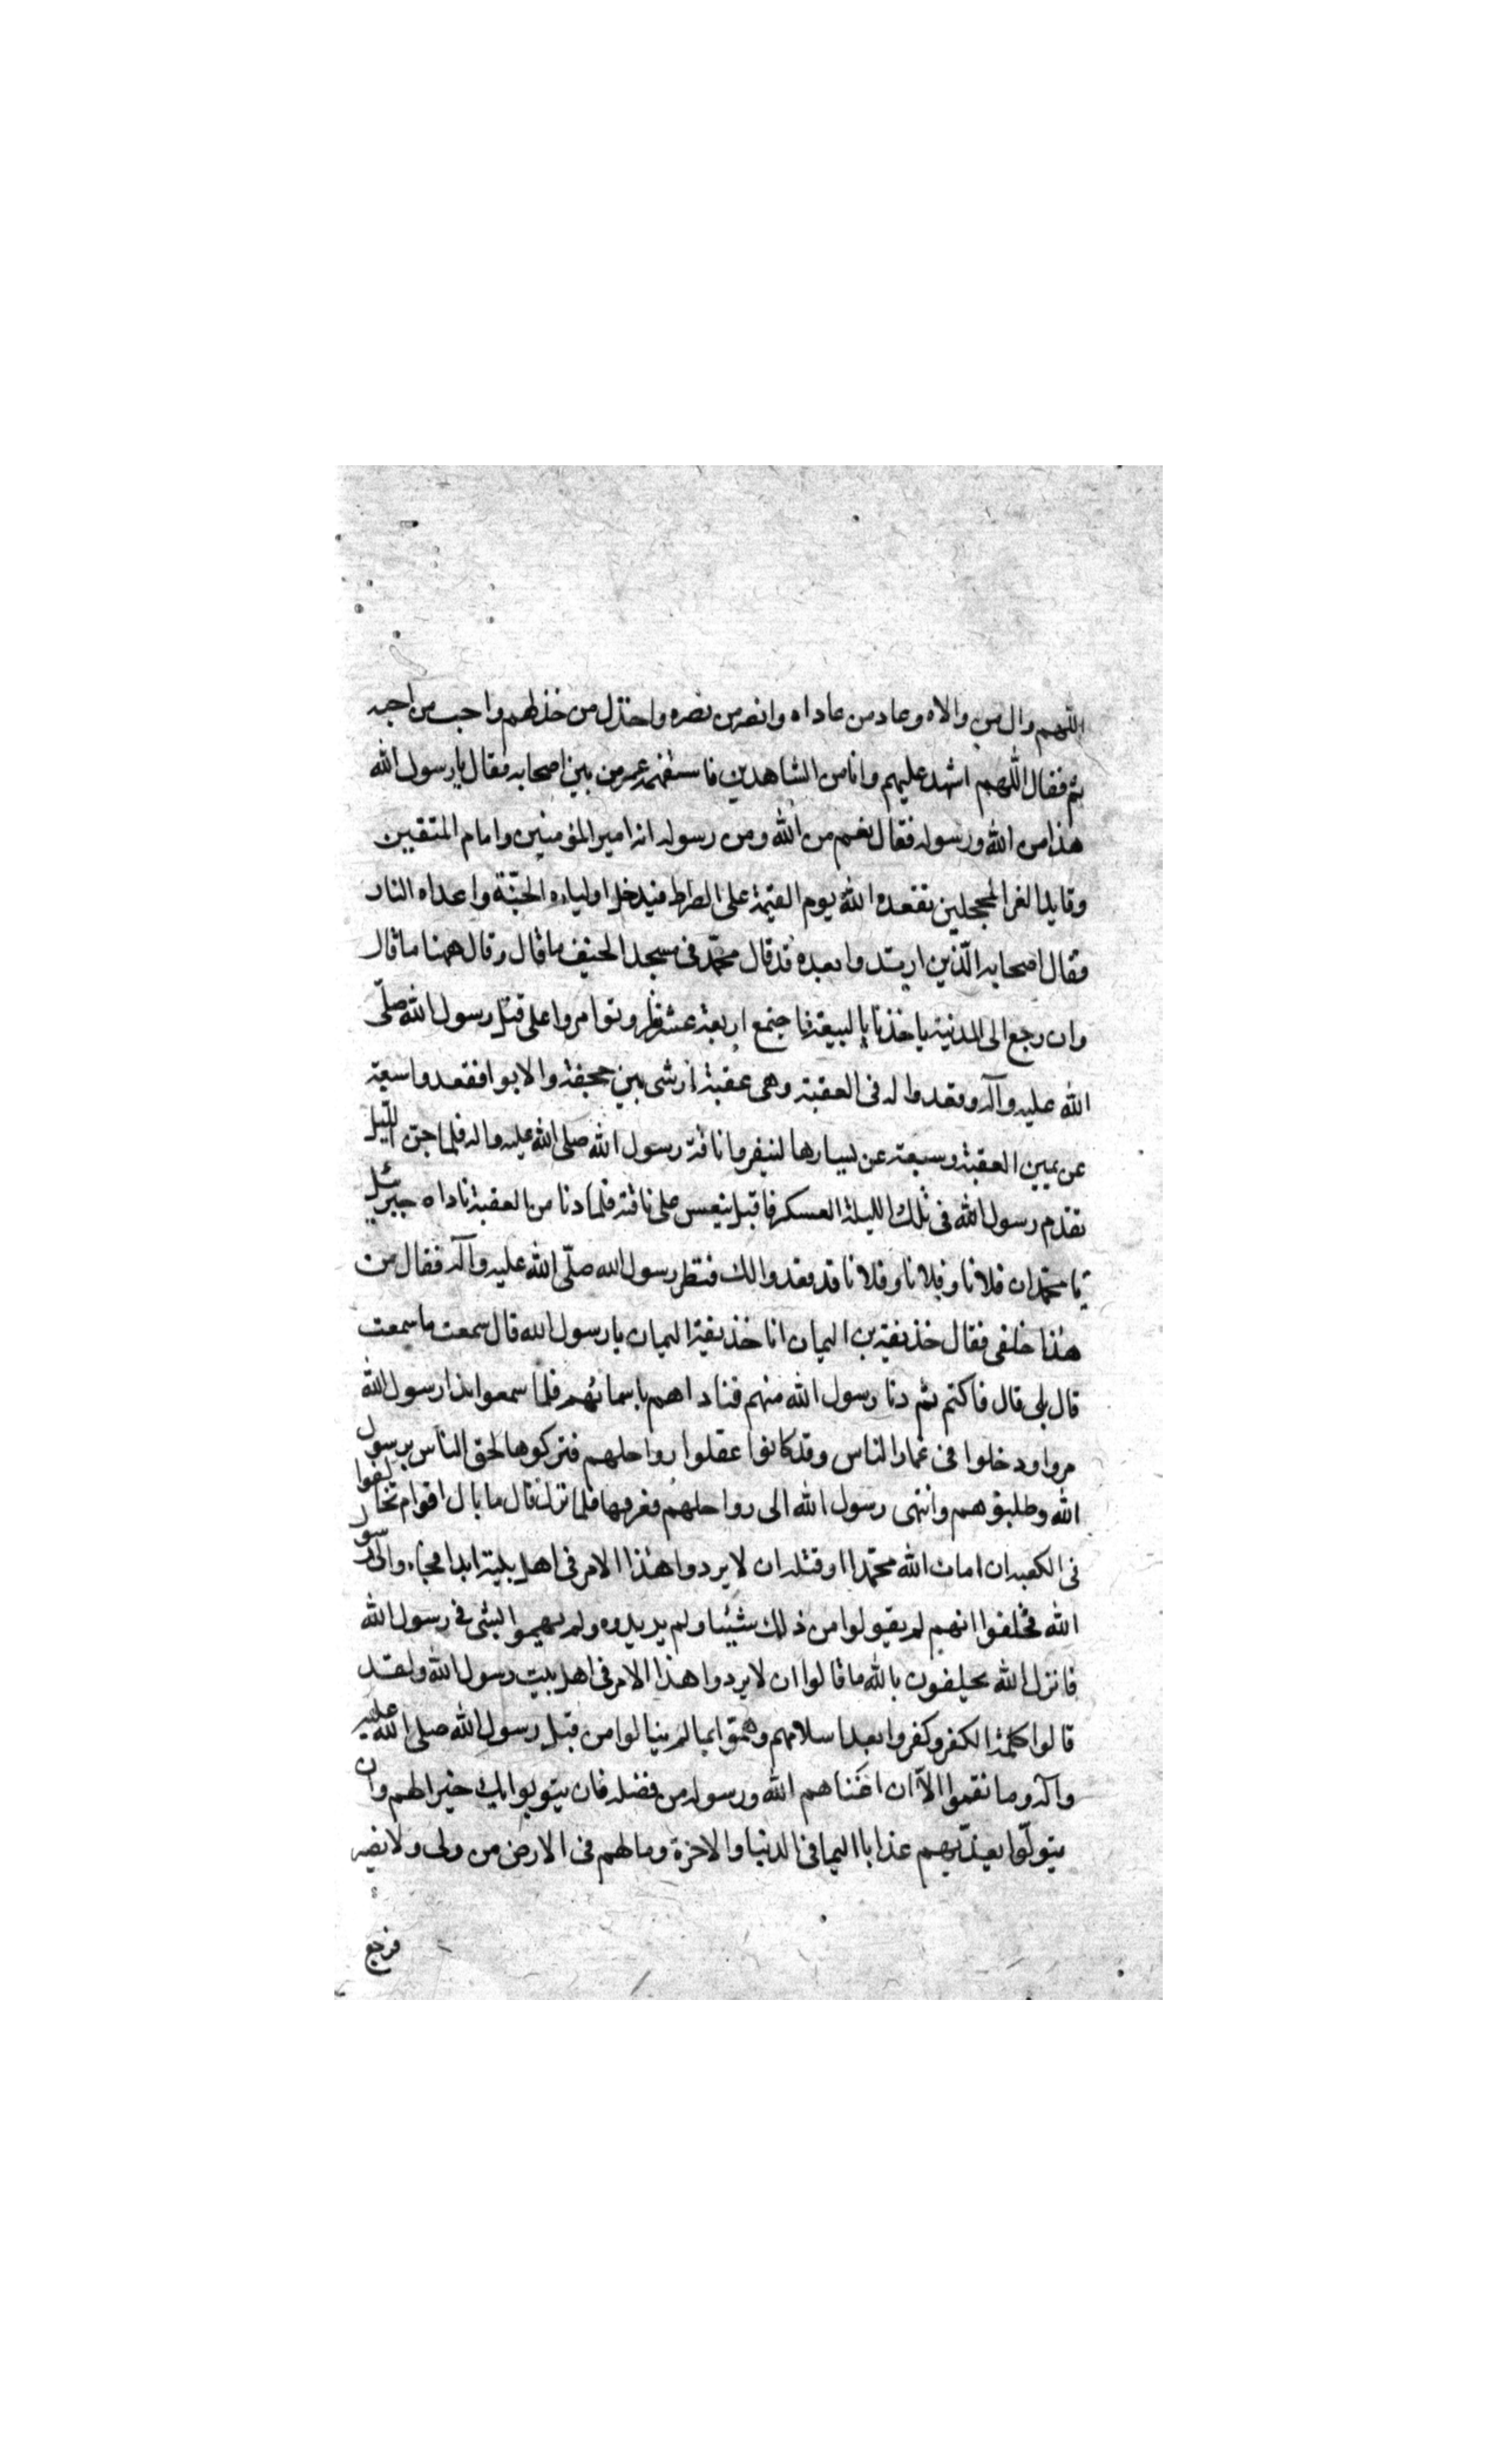 اللهم وال من والاه وعاد من عاداه وانصر من نصره واخذل من خذلهم واحب من احبه
ثم فقال اللهم اشهد عليهم وانا من الشاهدين فاستفهمه عمر من بين اصحابه فقال يا رسول الله
هذا من الله ورسوله فقال نعم من الله ومن رسوله انه امير المؤمنين وامام المتقين
وقايد الغر المحجلين يقعده الله يوم القيمة على الصراط فيدخل اولياءه الجنّة واعداه النار
فقال اصحابه الّذين ارتدوا بعده قد قال محمّد فى مسجد الخيف ما قال وقال ههنا ما قال
وان رجع الى المدنية ياخذنا بالبيعة فاجتمع اربعة عشر نفر وتوامروا على قتل رسول الله صلّى
الله عليه وآله وقعدوا له فى العقبة وهى عقبة ارشى بين جحفة والابوا فقعدوا سبعة
عن يمين العقبة وسبعة عن يسارها لينفروا ناقة رسول الله صلى الله عليه واله فلما جن اللّيل
تقدم رسول الله فى تلك الليلة العسكر فاقبل ينعس على ناقته فلما دنا من العقبة ناداه جبرئيل
يا محمّد ان فلانا وفلانا وفلانا قد قعدوا لك فنظر رسول الله صلّى الله عليه وآله فقال من
هذا خلفى فقال حذيفة بن اليمان انا حذيفة اليمان يا رسول الله قال سمعت ما سمعت
قال بلى قال فاكتم ثم دنا رسول الله منهم فناداهم باسمائهم فلما سمعوا نداء رسول الله
مروا ودخلوا فى غمار الناس وقد كانوا عقلوا رواحلهم فتركوها لحق الناس برسول
الله وطلبوهم وانتهى رسول الله الى رواحلهم فعرفها فلما نزل قال ما بال اقوام تحالفوا
فى الكعبة ان امات الله محمّدا او قتله ان لا يردوا هذا الامر فى اهل بيته ابدا فجاء والى رسول
الله فحلفوا انهم لم يقولوا من ذلك شيئا ولم يريدوه ولم يهموا بشى فى رسول الله
فانزل الله يحلفون بالله ما قالوا ان لا يردوا هذا الامر فى اهل بيت رسول الله ولقد
قالوا كلمة الكفر وكفروا بعد اسلامهم وهمّوا بما لم ينالوا من قبل رسول الله صلى الله عليه
وآله وما نقموا الاّ ان اغنناهم الله ورسوله من فضله فان يتوبوا يك خيرا لهم وان
يتولّوا يعذّبهم عذابا اليما فى الدنيا والاخرة وما لهم فى الارض من ولى ولا نصير
فرجع